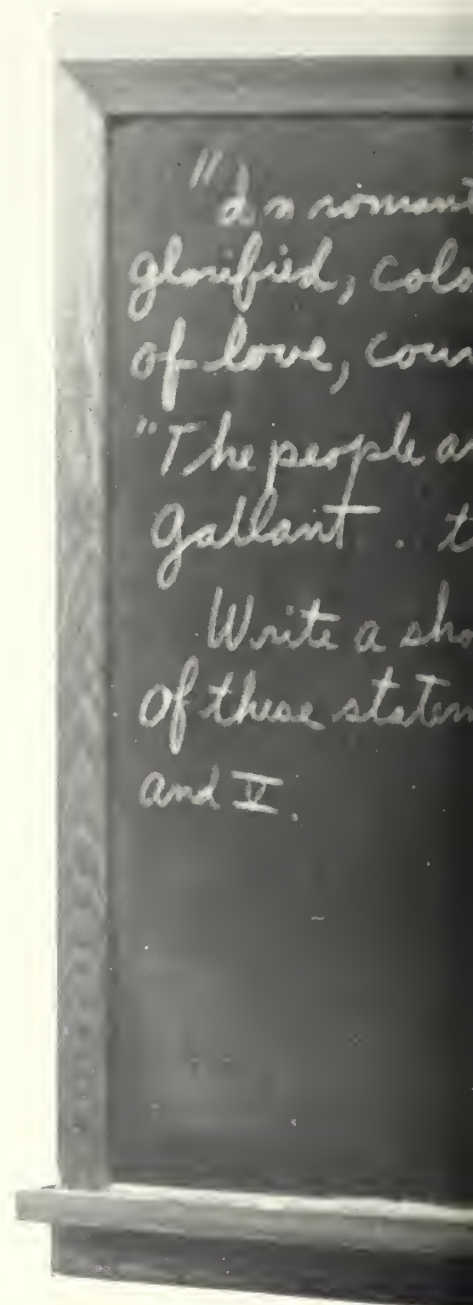 "In romant
glorified, colo
of love, cour
"The people ar
Gallant . . t
Write a sho
of these statem
and V.